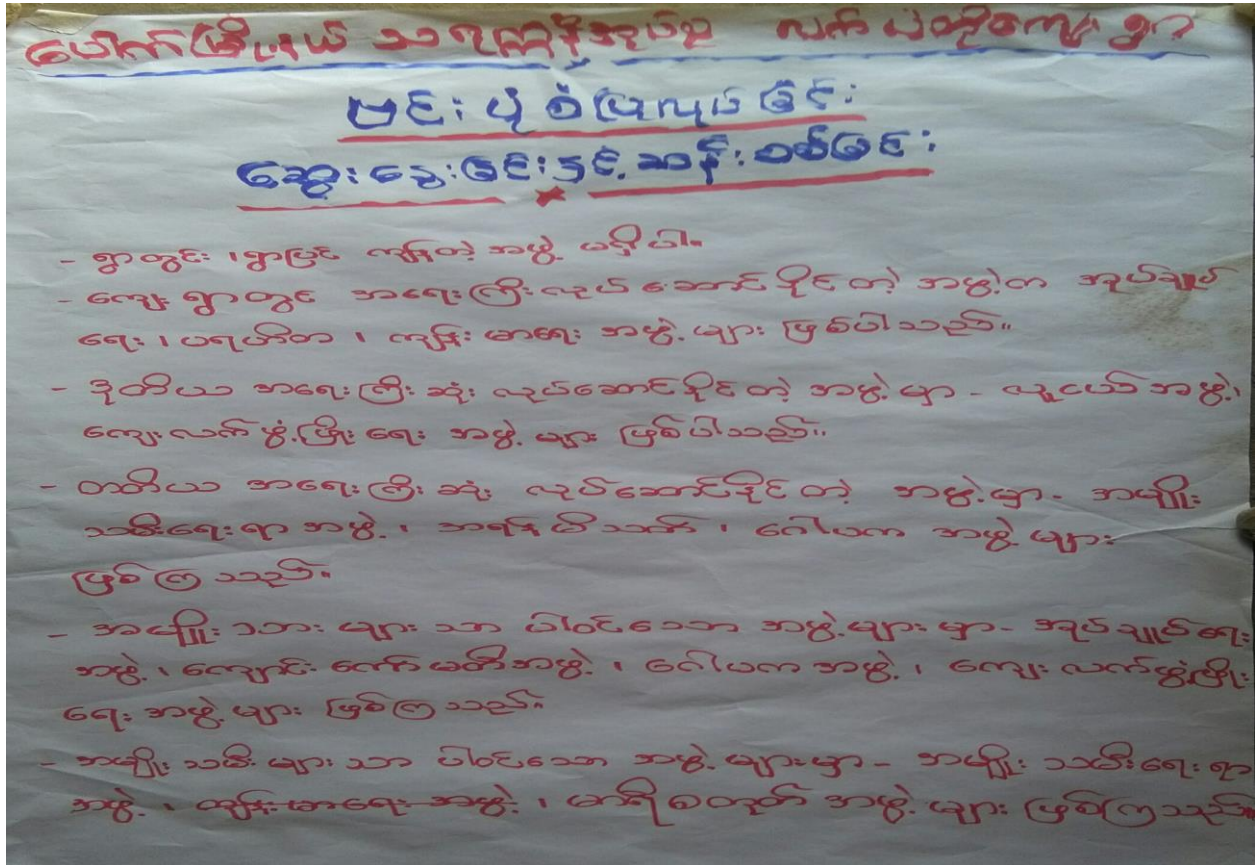 ပေါက်မြို့နယ် သရက္ကန်အုပ်စု လက်ပံတိုကျေးရွာ
ဗင်းပုံစံပြုလုပ်ခြင်း
ဆွေးနွေးခြင်းနှင့်ဆန်းစစ်ခြင်း
- ရွာတွင်း ၊ ရွာပြင် ကျန်တဲ့ အဖွဲ့ မရှိပါ။
- ကျေးရွာတွင် အရေးကြီးလုပ်ဆောင်နိုင်တဲ့ အဖွဲ့က အုပ်ချုပ်
ရေး ၊ ပရဟိတ ၊ ကျန်းမာရေး အဖွဲ့များ ဖြစ်ပါသည်။
- ဒုတိယ အရေးကြီးဆုံး လုပ်ဆောင်နိုင်တဲ့ အဖွဲ့မှာ - လူငယ်အဖွဲ့၊
ကျေးလက်ဖွံ့ဖြိုးရေး အဖွဲ့များ ဖြစ်ပါသည်။
- တတိယ အရေးကြီးဆုံး လုပ်ဆောင်နိုင်တဲ့ အဖွဲ့မှာ - အမျိုး
သမီးရေးရာအဖွဲ့ ၊ အရန်မီးသတ် ၊ ဂေါပက အဖွဲ့များ
ဖြစ်ကြသည်။
- အမျိုးသားများသာ ပါဝင်သော အဖွဲ့များမှာ - အုပ်ချုပ်ရေး
အဖွဲ့ ၊ ကျောင်းကော်မတီအဖွဲ့ ၊ ဂေါပကအဖွဲ့ ၊ ကျေးလက်ဖွံ့ဖြိုး
ရေးအဖွဲ့များ ဖြစ်ကြသည်။
- အမျိုးသမီးများသာ ပါဝင်သော အဖွဲ့များမှာ - အမျိုးသမီးရေးရာ
အဖွဲ့ ၊ ကျန်းမာရေးအဖွဲ့ ၊ မာရီစတုတ် အဖွဲ့များ ဖြစ်ကြသည်။